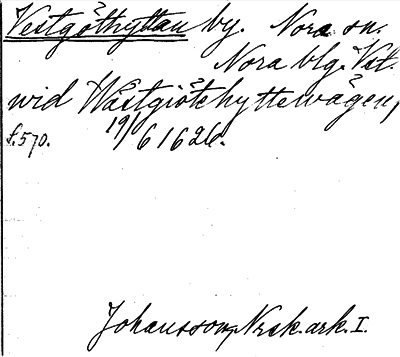 Vestgöthyttan by. Nora sn.
Nora blg. Vst.
wid Wästgiötehyttewägen,
f. 570. 19/6 1626.
Johansson, Nrsk. ark. I.